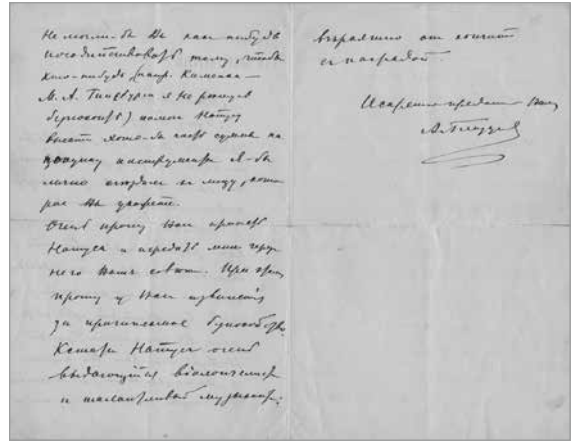 Не могли-бы Вы как нибудь
посодействовать тому, чтобы
кто-нибудь (напр. Каменка —
М. А. Гинсбурга я не рискую
беспокоить) помог Натусу
внести хотя-бы часть суммы на
покупку инструмента. Я-бы
лично съездил к лицу, кото-
рое Вы укажете.
Очень прошу Вас принять
Натуса и передать мне через
него Вашъ совет. При этом
прошу у Вас извинения
за причиняемое беспокойство.
Кстати Натус очень
выдающийся віолончелист
и талантливый музыкант;
вероятно он кончит
с наградой.
Искренно преданный Вам
А. Глазунов